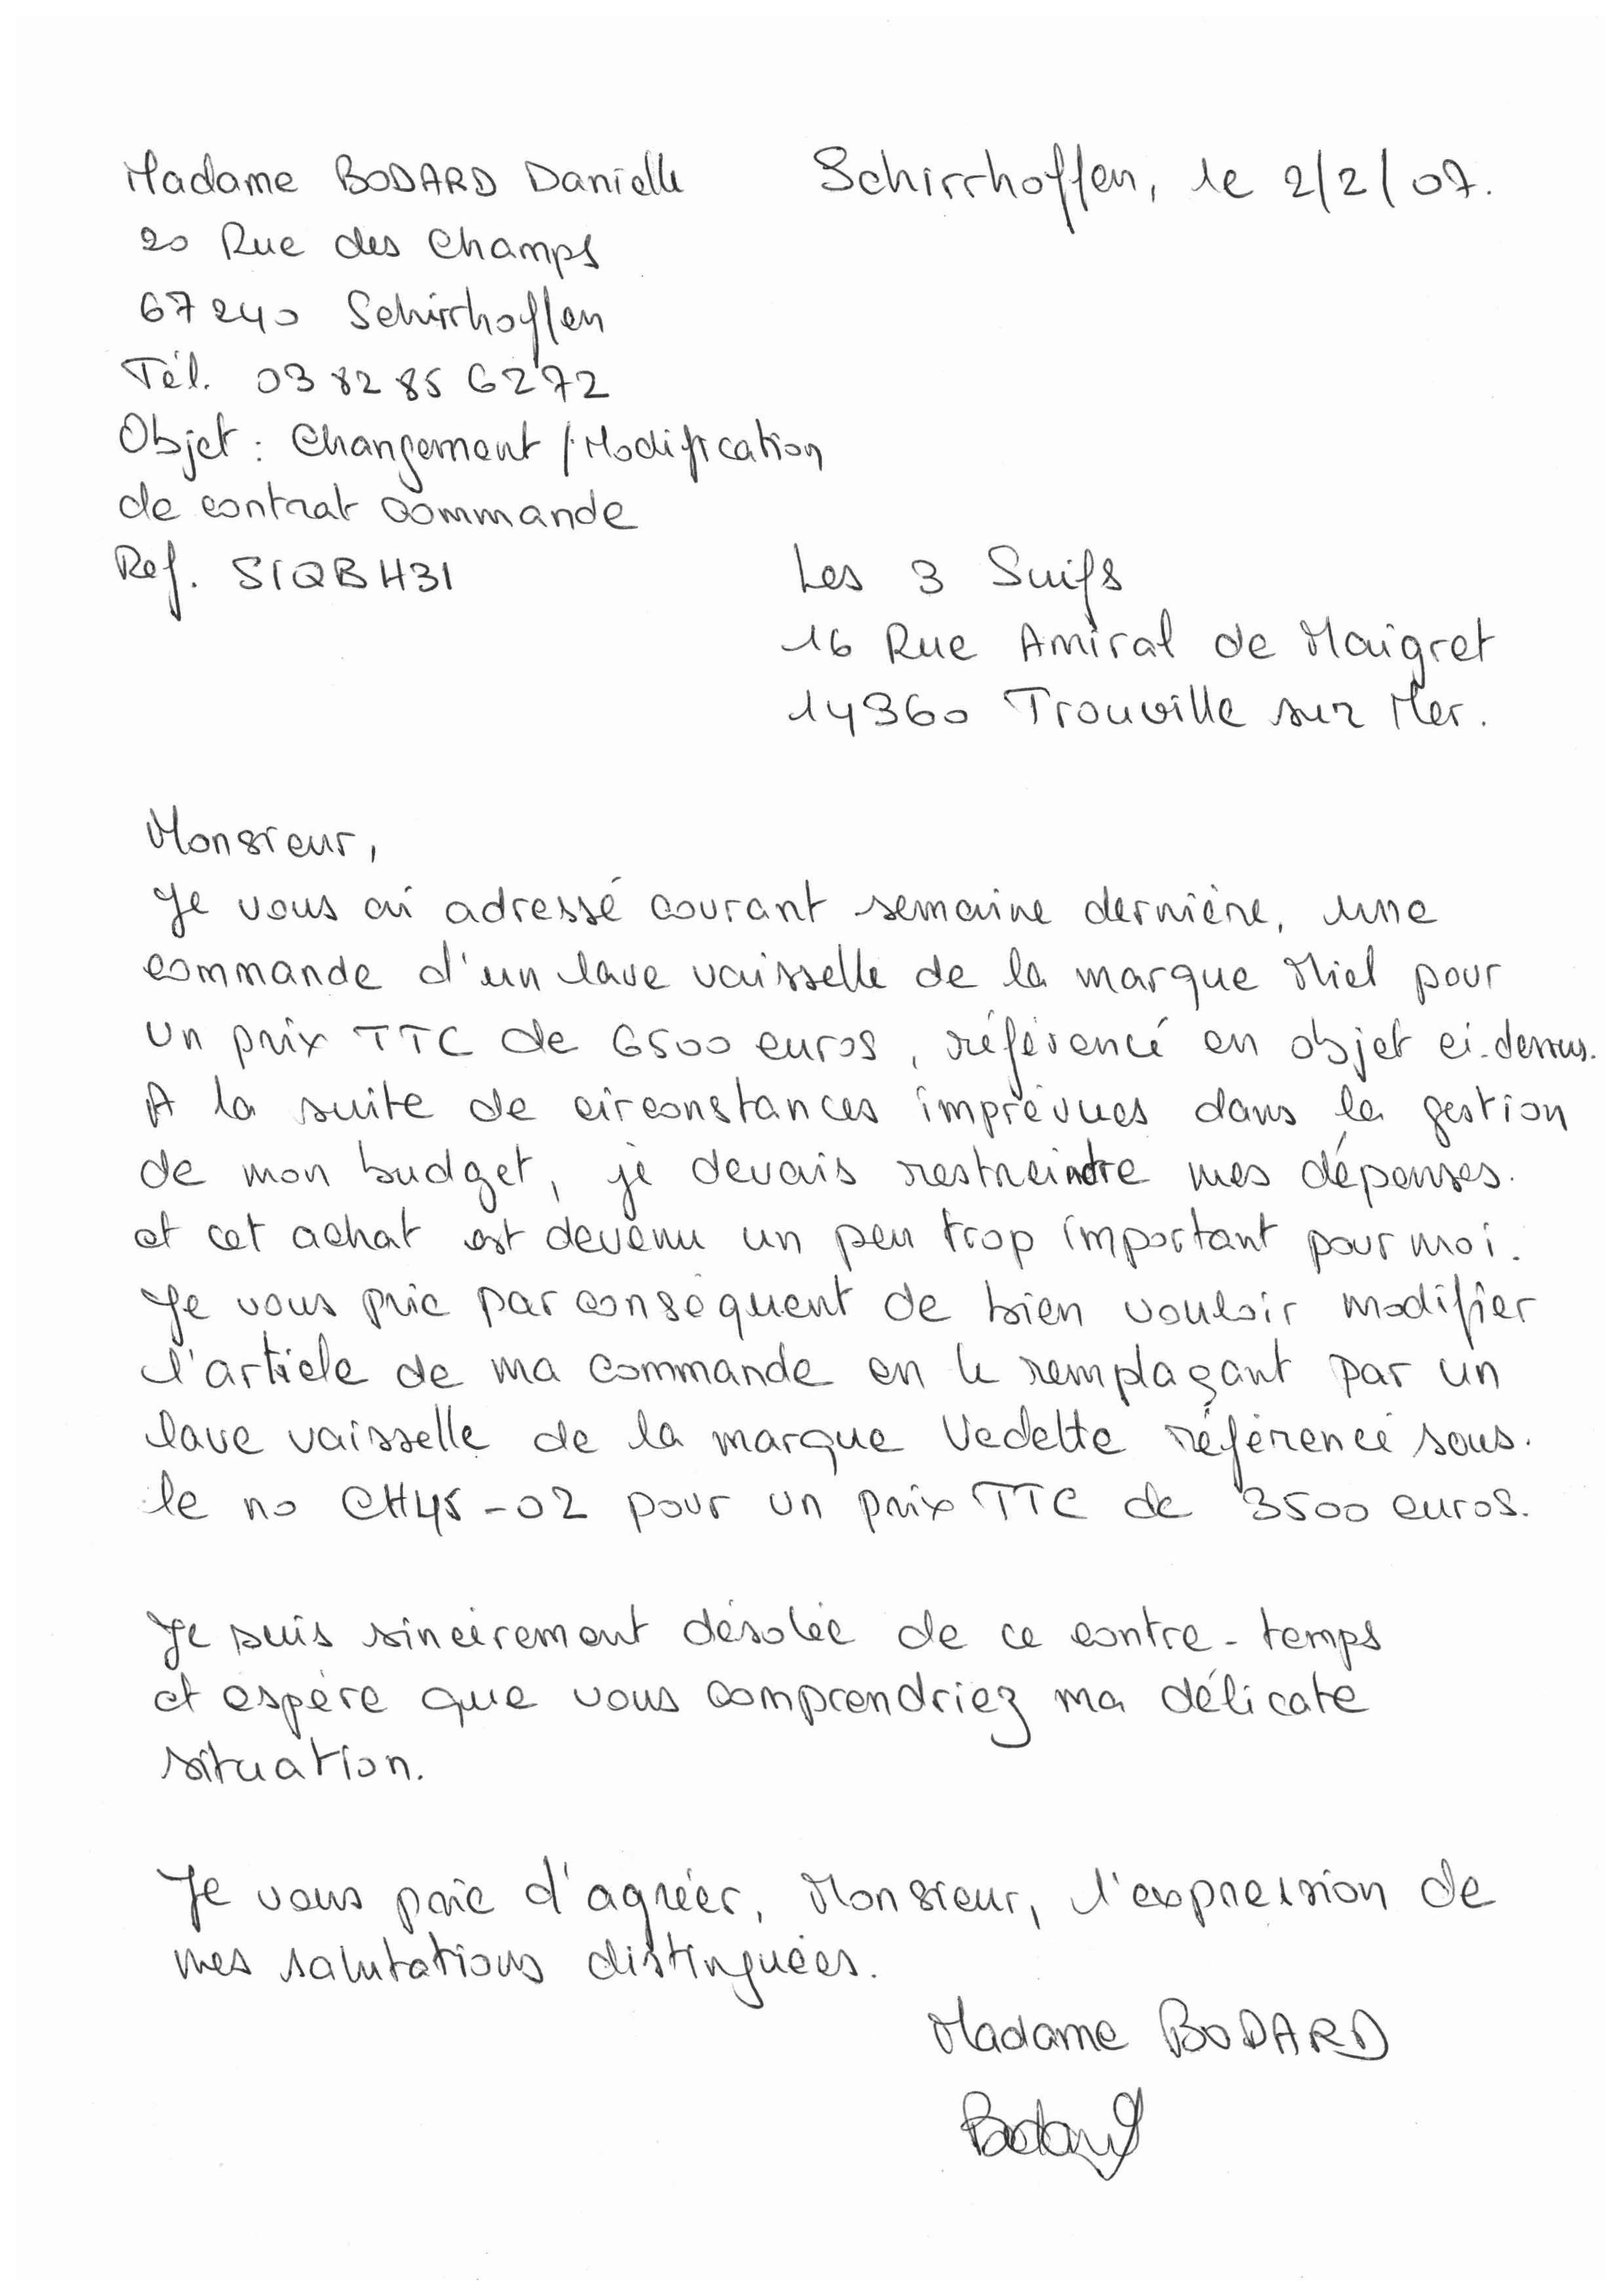 Madame BODARD Danielle
Schirrhoffen, le 2/2/07.
20 Rue des Champs
67240 Schirrhoffen
Tél. 03 82 85 62 72
Objet : Changement / Modification
de contrat commande
Ref. SIQBH31
Les 3 Suifs
16 Rue Amiral de Maigret
14360 Trouville sur Mer.
Monsieur,
Je vous ai adressé courant semaine dernière, une
commande d'un lave vaisselle de la marque Miel pour
un prix TTC de 6500 euros, référencé en objet ci-dessus.
A la suite de circonstances imprévues dans la gestion
de mon budget, je devais restreindre mes dépenses.
et cet achat est devenu un peu trop important pour moi.
Je vous prie par conséquent de bien vouloir modifier
l'article de ma commande en le remplaçant par un
lave vaisselle de la marque Vedette référencé sous.
le no CH45-02 pour un prix TTC de 3500 euros.
Je suis sincèrement désolée de ce contre-temps
et espère que vous comprendriez ma délicate
situation.
Je vous prie d'agréer, Monsieur, l'expression de
mes salutations distinguées.
Madame BODARD
Bodard